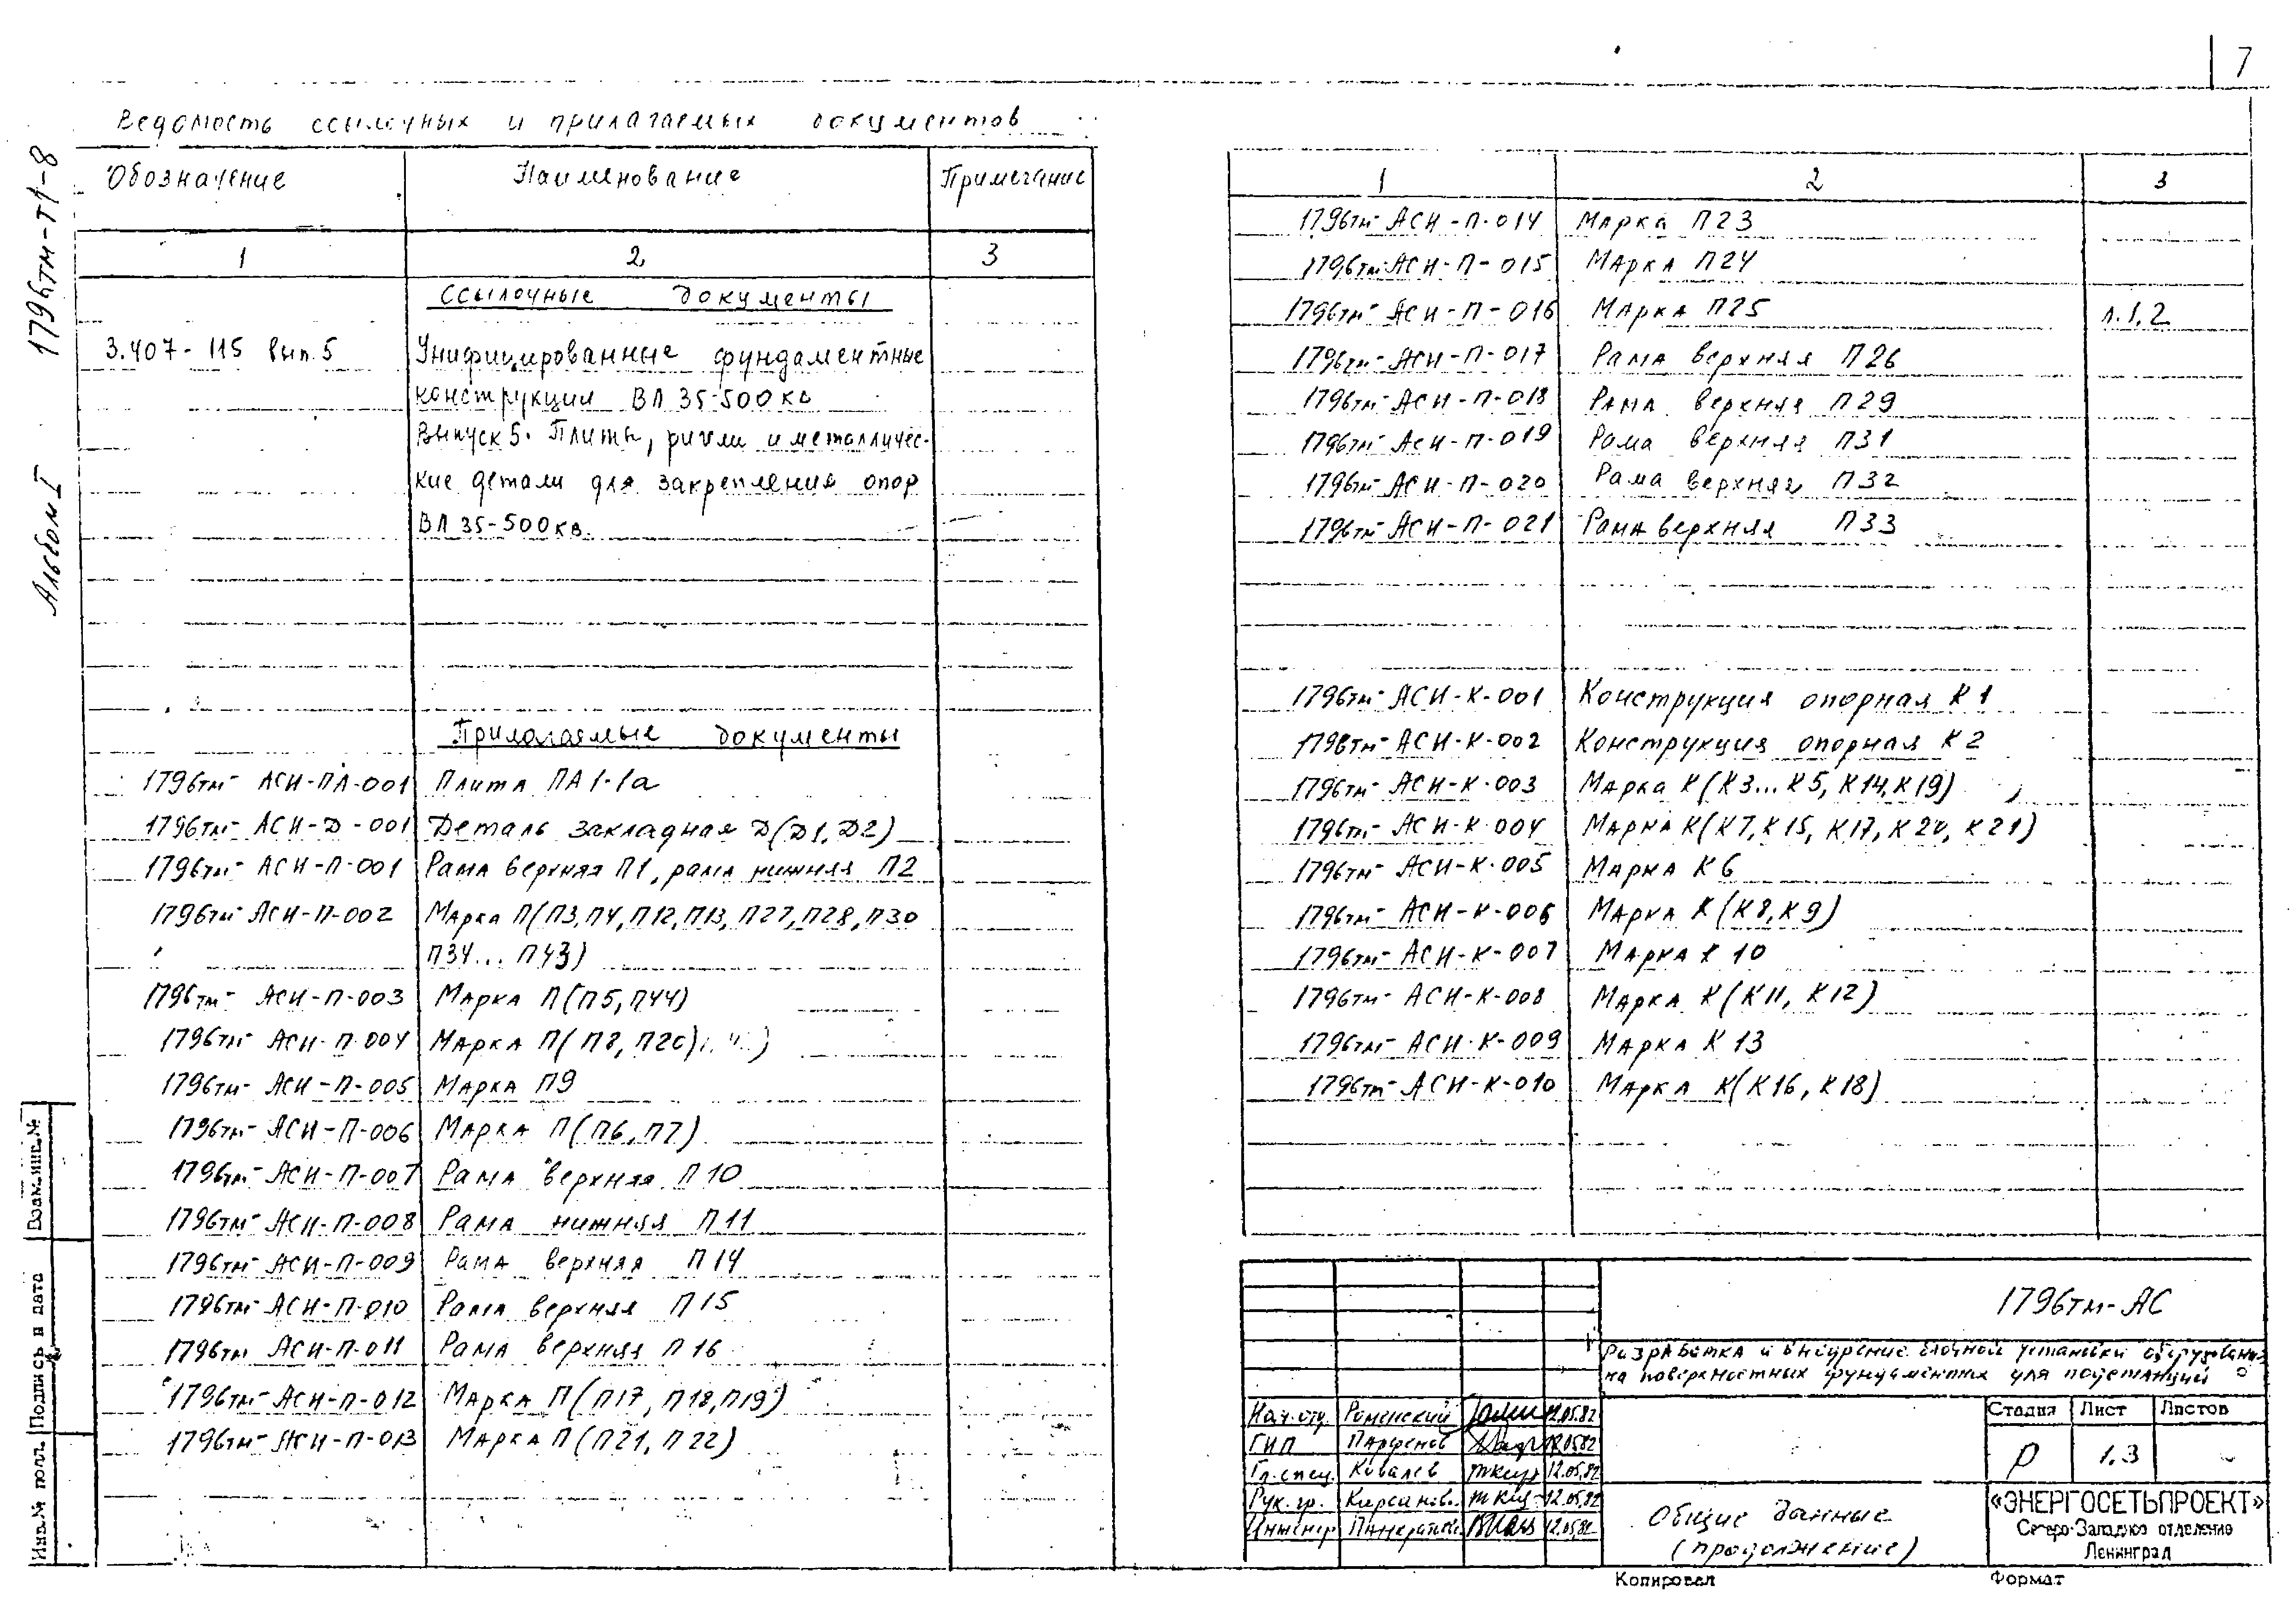 7
1796тм-Т1-8
Альбом I
Ведомость ссылочных и прилагаемых документов
Обозначение Наименование Примечание
1 2 3
Ссылочные документы
3.407-115 вып.5 Унифицированные фундаментные
конструкции ВЛ 35-500кв
Выпуск 5. Плиты, ригели и металличес-
кие детали для закрепления опор
ВЛ 35-500кв.
Прилагаемые документы
1796тм- АСИ-ПА-001 Плита ПА1-1а
1796тм- АСИ-Д-001 Деталь закладная Д(Д1, Д2)
1796тм- АСИ-П-001 Рама верхняя П1, рама нижняя П2
1796тм- АСИ-П-002 Марка П(П3, П4, П12, П13, П27, П28, П30
П34... П43)
1796тм- АСИ-П-003 Марка П(П5, П44)
1796тм- АСИ-П-004 Марка П(П8, П20)
1796тм- АСИ-П-005 Марка П9
1796тм- АСИ-П-006 Марка П(П6, П7)
1796тм- АСИ-П-007 Рама верхняя П10
1796тм- АСИ-П-008 Рама нижняя П11
1796тм- АСИ-П-009 Рама верхняя П14
1796тм- АСИ-П-010 Рама верхняя П15
1796тм АСИ-П-011 Рама верхняя П16
1796тм- АСИ-П-012 Марка П(П17, П18, П19)
1796тм- АСИ-П-013 Марка П(П21, П22)
1 2 3
1796тм- АСИ-П-014 Марка П23
1796тм- АСИ-П-015 Марка П24
1796тм- АСИ-П-016 Марка П25 л.1,2
1796тм- АСИ-П-017 Рама верхняя П26
1796тм- АСИ-П-018 Рама верхняя П29
1796тм- АСИ-П-019 Рама верхняя П31
1796тм- АСИ-П-020 Рама верхняя П32
1796тм- АСИ-П-021 Рама верхняя П33
1796тм- АСИ-К-001 Конструкция опорная К1
1796тм- АСИ-К-002 Конструкция опорная К2
1796тм- АСИ-К-003 Марка К(К3...К5, К14, К19)
1796тм- АСИ-К-004 Марка К(К7, К15, К17, К20, К21)
1796тм- АСИ-К-005 Марка К6
1796тм- АСИ-К-006 Марка К(К8, К9)
1796тм- АСИ-К-007 Марка К10
1796тм- АСИ-К-008 Марка К(К11, К12)
1796тм- АСИ-К-009 Марка К13
1796тм- АСИ-К-010 Марка К(К16, К18)
1796тм-АС
Разработка и внедрение блочной установки оборудования
на поверхностных фундаментах для подстанций
Нач. отд. Роменский 12.05.82
ГИП Парфенов 12.05.82
Гл. спец. Ковалев 12.05.82
Рук. гр. 12.05.82
Инженер 12.05.82
Стадия Лист Листов
Р 1.3 -
Общие данные
(продолжение)
«ЭНЕРГОСЕТЬПРОЕКТ»
Северо-Западное отделение
Ленинград
Копировал Формат
Взам.инв.№
Подпись и дата
Инв.№ подл.